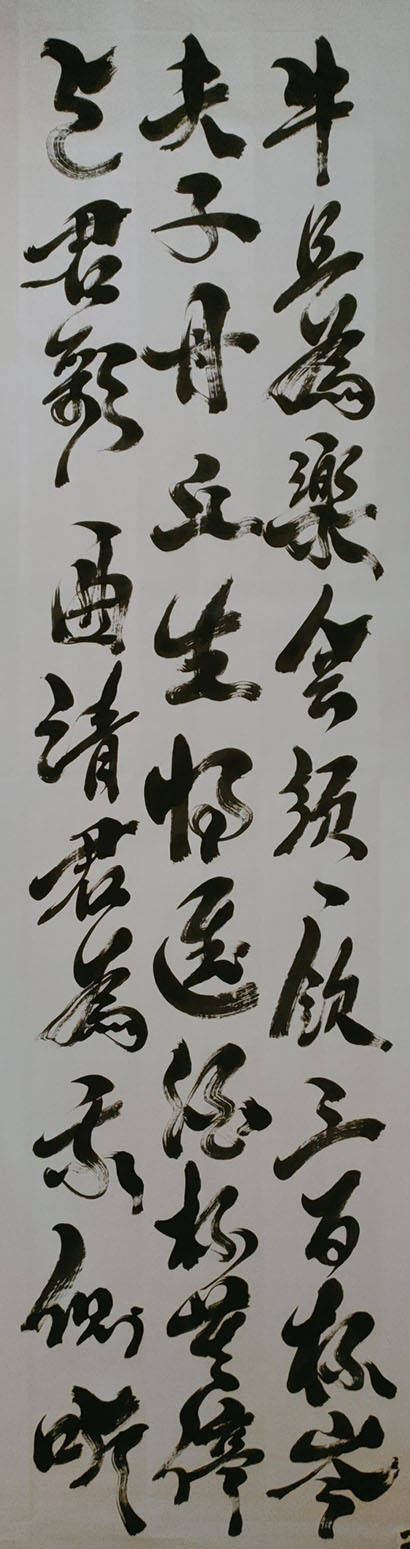 牛且為樂会須一飲三百杯岑
夫子丹丘生將進酒杯莫停
与君歌一曲請君為我側听